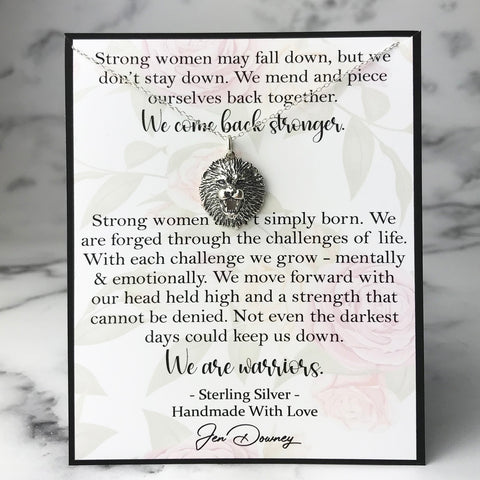 Strong women may fall down, but we
don't stay down. We mend and piece
ourselves back together.
We come back stronger.
Strong women t simply born. We
are forged through the challenges of life.
With each challenge we grow - mentally
& emotionally. We move forward with
our head held high and a strength that
cannot be denied. Not even the darkest
days could keep us down.
We are warriors.
- Sterling Silver -
Handmade With Love
Jen Downey